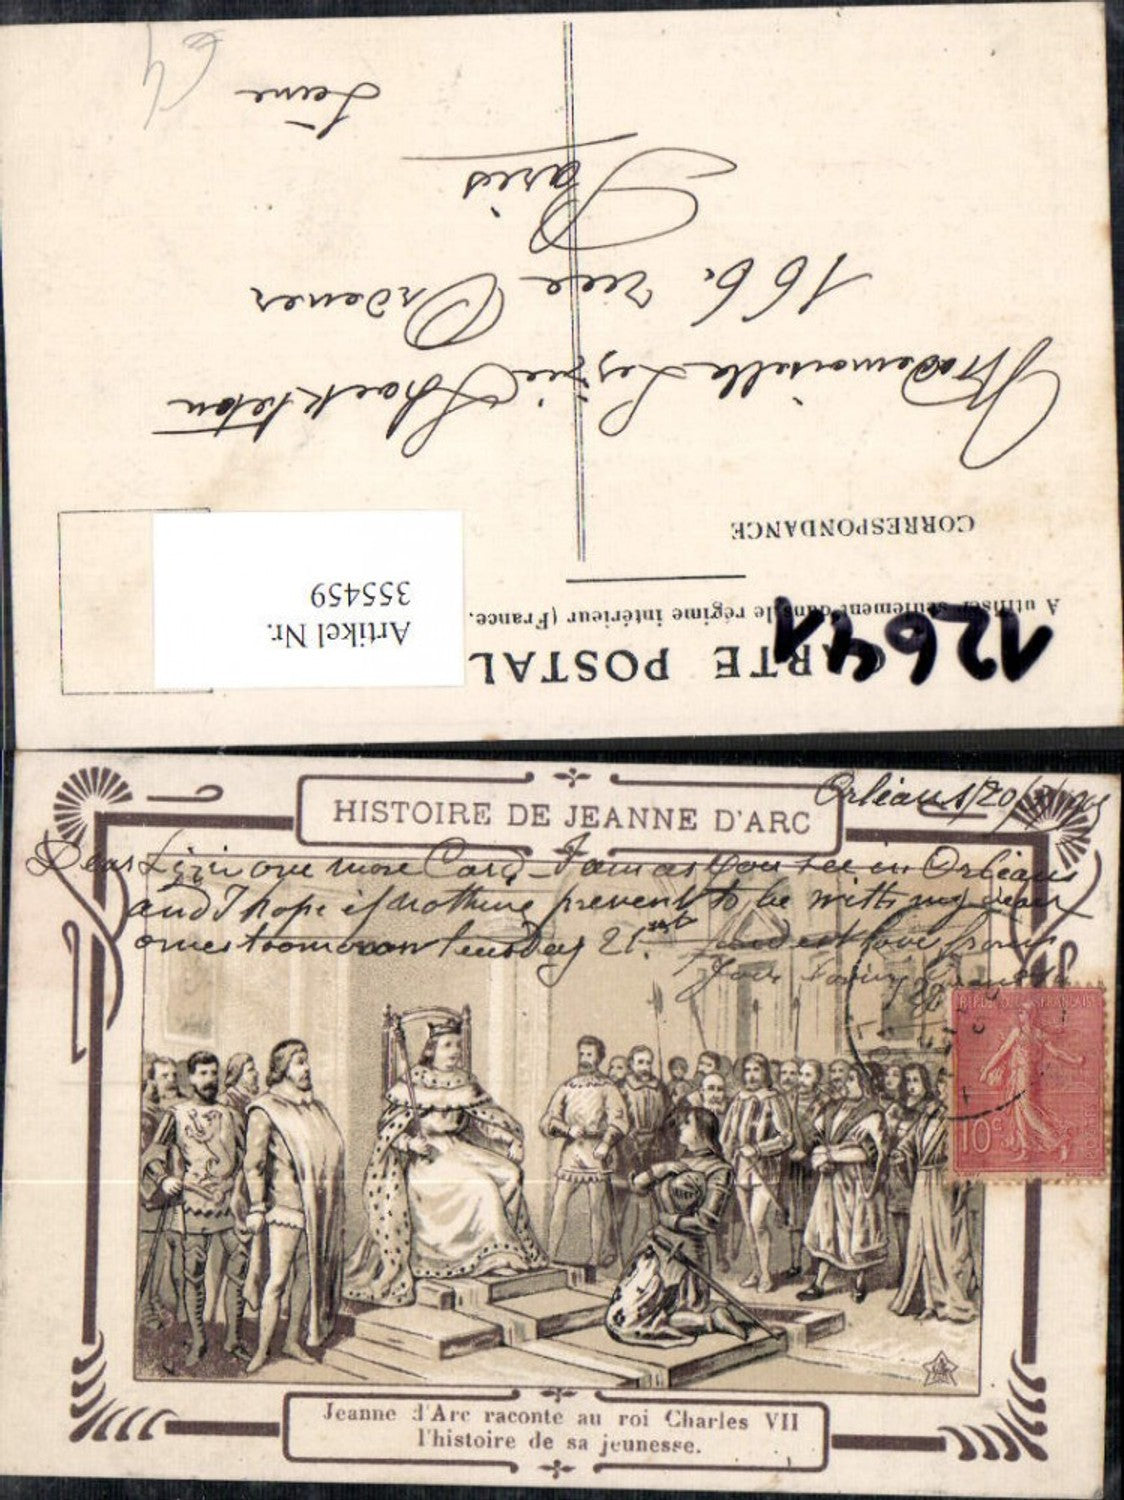 CARTE POSTAL
A utiliser seulement dans le régime intérieur (France.
12641
Artikel Nr.
355459
CORRESPONDANCE
Mademoiselle Lizzie Shackleton
166. rue Ordener
Paris
Seine
HISTOIRE DE JEANNE D'ARC
Orléans 20
Dear Lizzi one more Card - I am as you see in Orléans
and I hope if nothing prevent to be with my dear
ones toomorow tuesday 21st fondest love from
Your loving
RÉPUBLIQUE FRANÇAISE
10c
POSTES
Jeanne d'Arc raconte au roi Charles VII
l'histoire de sa jeunesse.